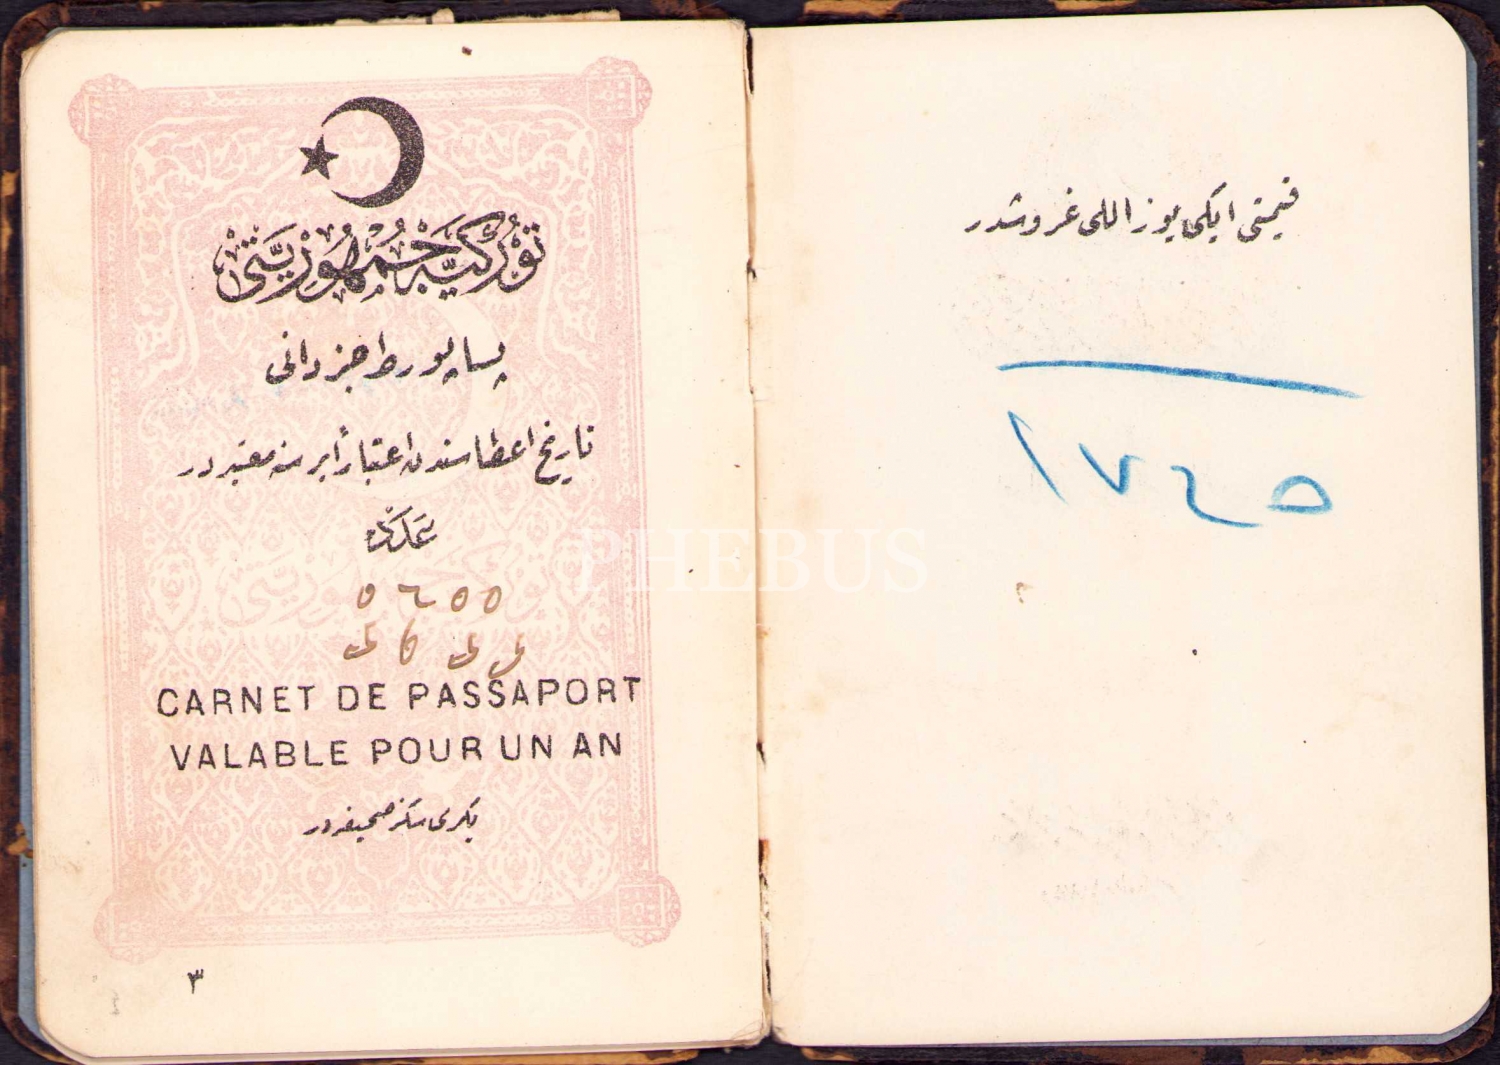 توركیه جمهوریتی
پساپورط جزدانی
تاریخ اعطاسندن اعتباراً بر سنه معتبردر
عددی
CARNET DE PASSAPORT
VALABLE POUR UN AN
یكرمی سكز صحیفه‌در
٣
قیمتی ایكی یوز اللی غروشدر
PHEBUS